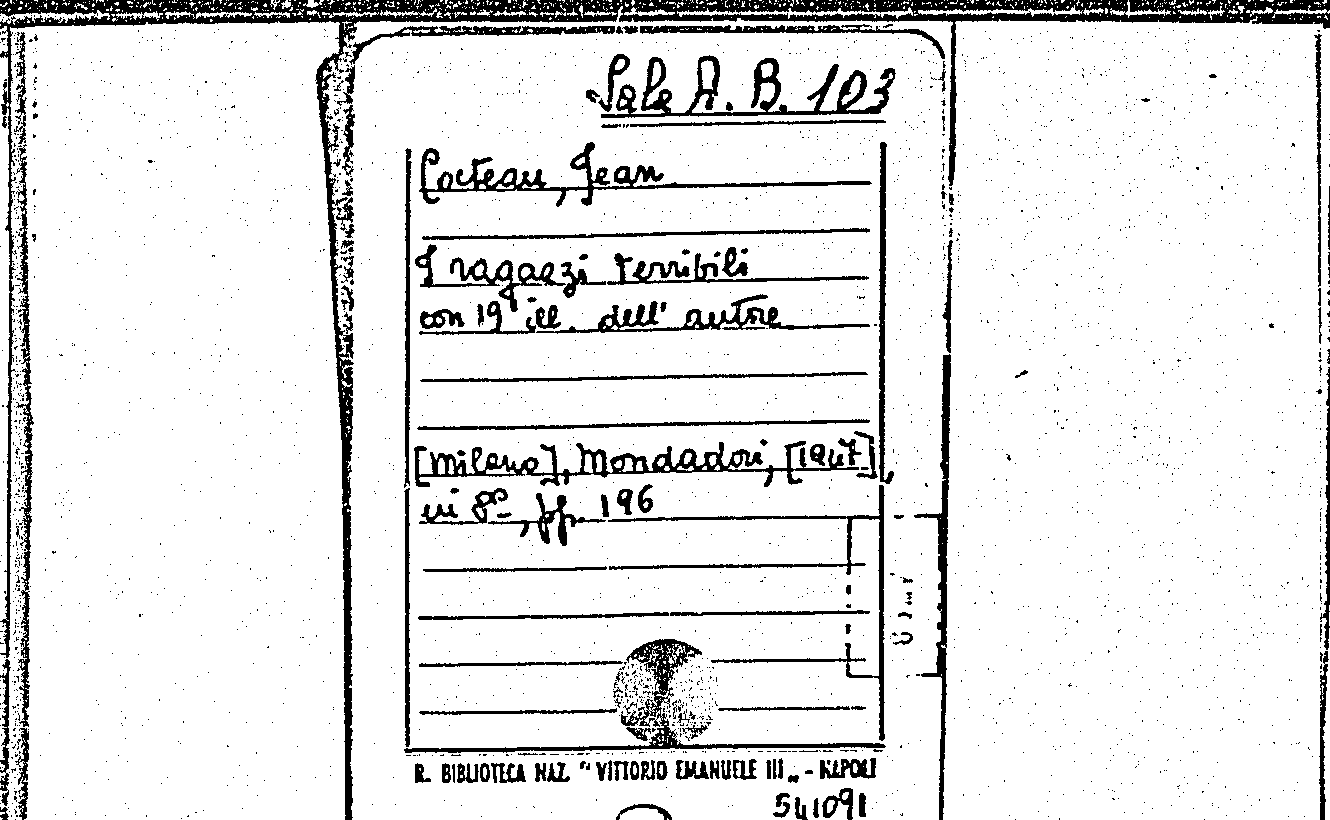 Sala A. B. 103
Cocteau, Jean
I ragazzi terribili
con 19 ill. dell' autore
[Milano], Mondadori, [1947],
in 8º, pp. 196
R. BIBLIOTECA NAZ. "VITTORIO EMANUELE III„ - NAPOLI
541091